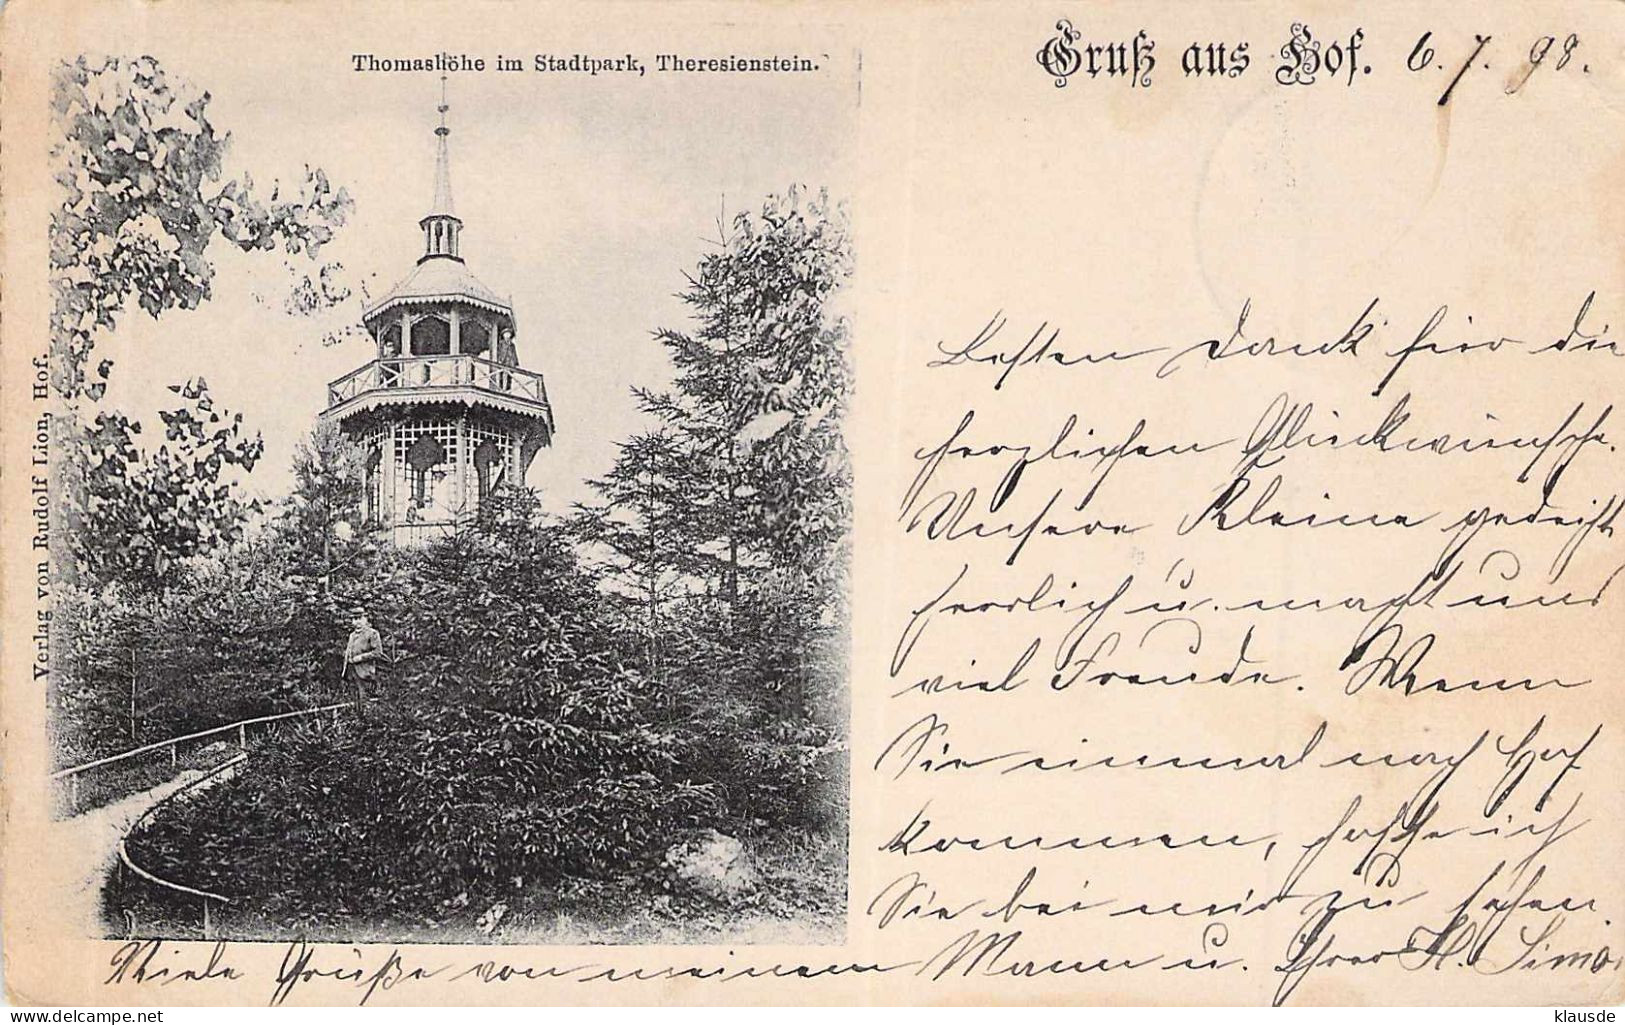 Thomashöhe im Stadtpark, Theresienstein.
Gruß aus Hof. 6. 7. 98.
Verlag von Rudolf Lion, Hof.
Besten Dank für die
herzlichen Glückwünsche.
Unsere Kleine gedeiht
herrlich u. macht uns
viel Freude. Wenn
Sie einmal nach Hof
kommen, hoffe ich
Sie bei mir zu sehen.
Viele Grüße von meinem Mann u. Ihrer H. Simo
delcampe.net
klausde